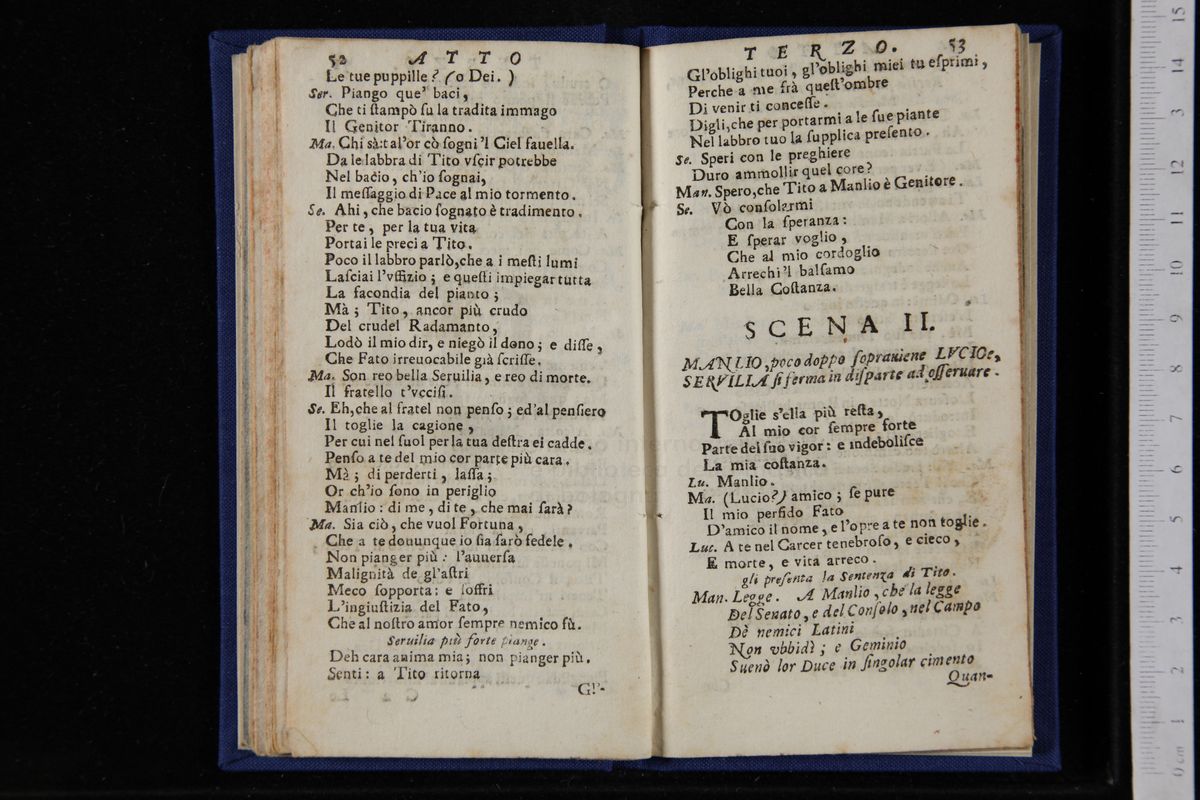 52 ATTO
Le tue puppille? (o Dei.)
Ser. Piango que' baci,
Che ti ſtampò ſu la tradita immago
Il Genitor Tiranno.
Ma. Chi sà: tal'or cò ſogni 'l Ciel fauella.
Da le labbra di Tito vſcir potrebbe
Nel bacio, ch'io ſognai,
Il meſſaggio di Pace al mio tormento.
Se. Ahi, che bacio ſognato è tradimento.
Per te, per la tua vita
Portai le preci a Tito.
Poco il labbro parlò, che a i meſti lumi
Laſciai l'vffizio; e queſti impiegar tutta
La facondia del pianto;
Mà; Tito, ancor più crudo
Del crudel Radamanto,
Lodò il mio dir, e niegò il dono; e diſſe,
Che Fato irreuocabile già ſcriſſe.
Ma. Son reo bella Seruilia, e reo di morte.
Il fratello t'vcciſi.
Se. Eh, che al fratel non penſo; ed'al penſiero
Il toglie la cagione,
Per cui nel ſuol per la tua deſtra ei cadde.
Penſo a te del mio cor parte più cara.
Mà; di perderti, laſſa;
Or ch'io ſono in periglio
Manlio: di me, di te, che mai ſarà?
Ma. Sia ciò, che vuol Fortuna,
Che a te douunque io ſia ſarò fedele.
Non pianger più: l'auuerſa
Malignità de gl'aſtri
Meco ſopporta: e ſoffri
L'ingiuſtizia del Fato,
Che al noſtro amor ſempre nemico fù.
Seruilia più forte piange.
Deh cara anima mia; non pianger più.
Senti: a Tito ritorna
Gl'-
TERZO. 53
Gl'oblighi tuoi, gl'oblighi miei tu eſprimi,
Perche a me frà queſt'ombre
Di venir ti conceſſe.
Digli, che per portarmi a le ſue piante
Nel labbro tuo la ſupplica preſento.
Se. Speri con le preghiere
Duro ammollir quel core?
Man. Spero, che Tito a Manlio è Genitore.
Se. Vò conſolarmi
Con la ſperanza:
E ſperar voglio,
Che al mio cordoglio
Arrechi 'l balſamo
Bella Coſtanza.
SCENA II.
MANLIO, poco doppo ſoprauiene LVCIO e,
SERVILIA ſi ferma in diſparte ad oſſeruare.
TOglie s'ella più reſta,
Al mio cor ſempre forte
Parte del ſuo vigor: e indeboliſce
La mia coſtanza.
Lu. Manlio.
Ma. (Lucio?) amico; ſe pure
Il mio perfido Fato
D'amico il nome, e l'opre a te non toglie.
Luc. A te nel Carcer tenebroſo, e cieco,
E morte, e vita arreco.
gli preſenta la Sentenza di Tito.
Man. Legge. A Manlio, che la legge
Del Senato, e del Conſolo, nel Campo
Dè nemici Latini
Non vbbidì; e Geminio
Suenò lor Duce in ſingolar cimento
Quan-